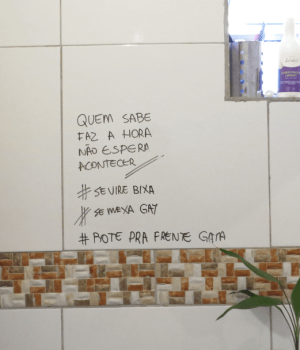 QUEM SABE
FAZ A HORA
NÃO ESPERA
ACONTECER
# SE VIRE BIXA
# SE MEXA GAY
# BOTE PRA FRENTE GATA